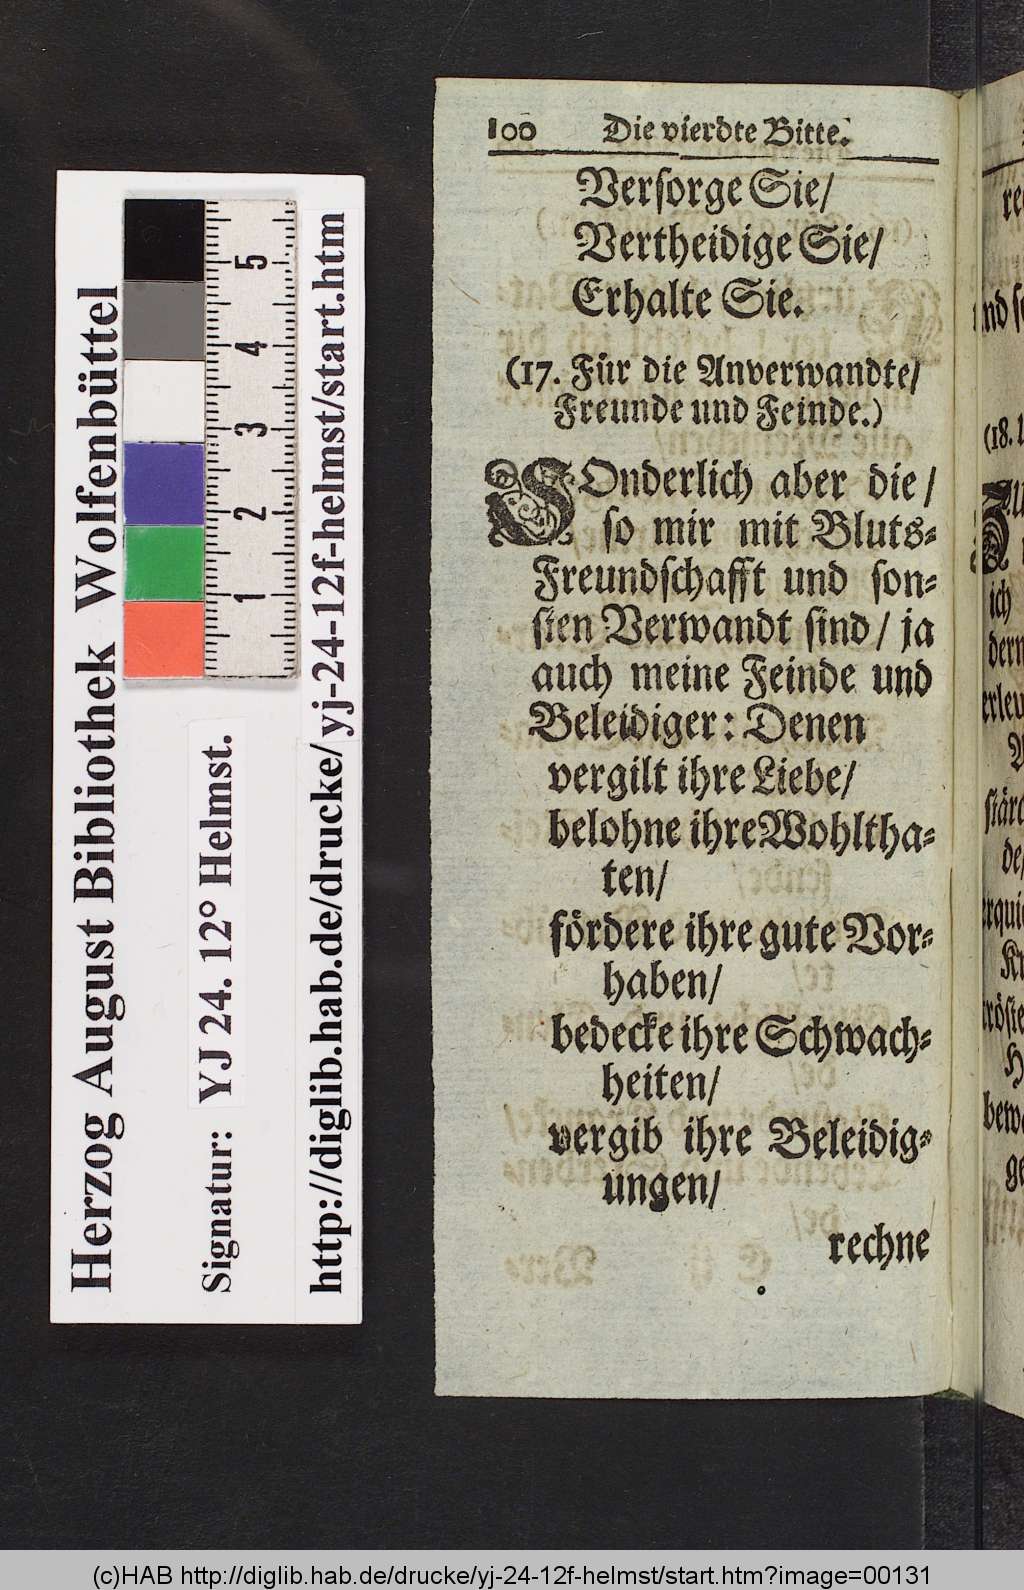 100 Die vierdte Bitte.
Versorge Sie/
Vertheidige Sie/
Erhalte Sie.
(17. Für die Anverwandte/
Freunde und Feinde.)
SOnderlich aber die/
so mir mit Bluts=
Freundschafft und son=
sten Verwandt sind/ ja
auch meine Feinde und
Beleidiger: Denen
vergilt ihre Liebe/
belohne ihre Wohltha=
ten/
fördere ihre gute Vor=
haben/
bedecke ihre Schwach=
heiten/
vergib ihre Beleidig=
ungen/
rechne
Herzog August Bibliothek Wolfenbüttel
Signatur: YJ 24. 12° Helmst.
http://diglib.hab.de/drucke/yj-24-12f-helmst/start.htm
1 2 3 4 5
(18.
ich
(c)HAB http://diglib.hab.de/drucke/yj-24-12f-helmst/start.htm?image=00131